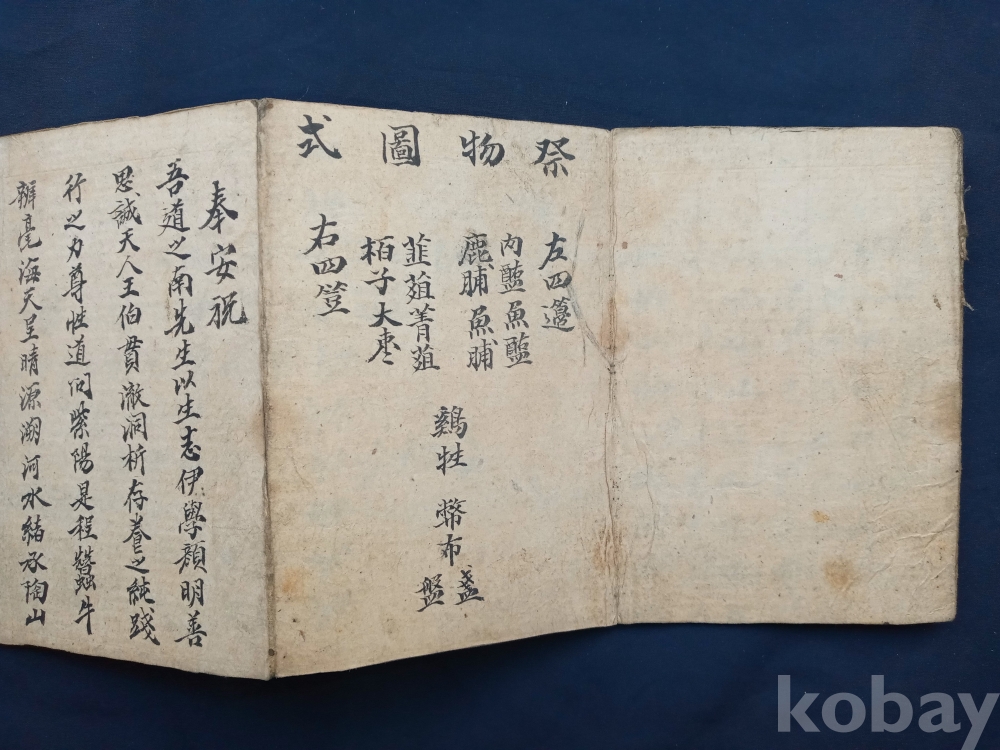 祭物圖式
左四籩
內醢魚醢
鹿脯魚脯
韮菹菁菹
栢子大棗
右四笠
鷄牲
幣布
盞
盤
奉安祝
吾道之南先生以生志伊學顔明善
思誠天人王伯貫澈洞析存養之純踐
行之力尊性道问紫陽是程蠶牛
辨毫海天呈晴源溯河水緖承陶山
kobay